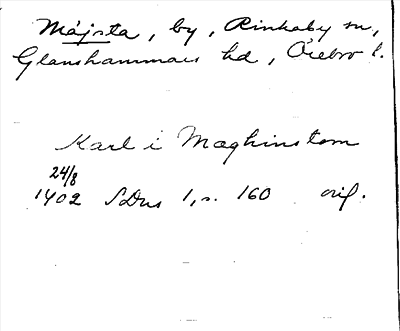 Måjsta, by, Rinkaby sn,
Glanshammars hd, Örebro l.
Karl i Mæghinstom
24/8
1402 SDns 1, s. 160 orig.